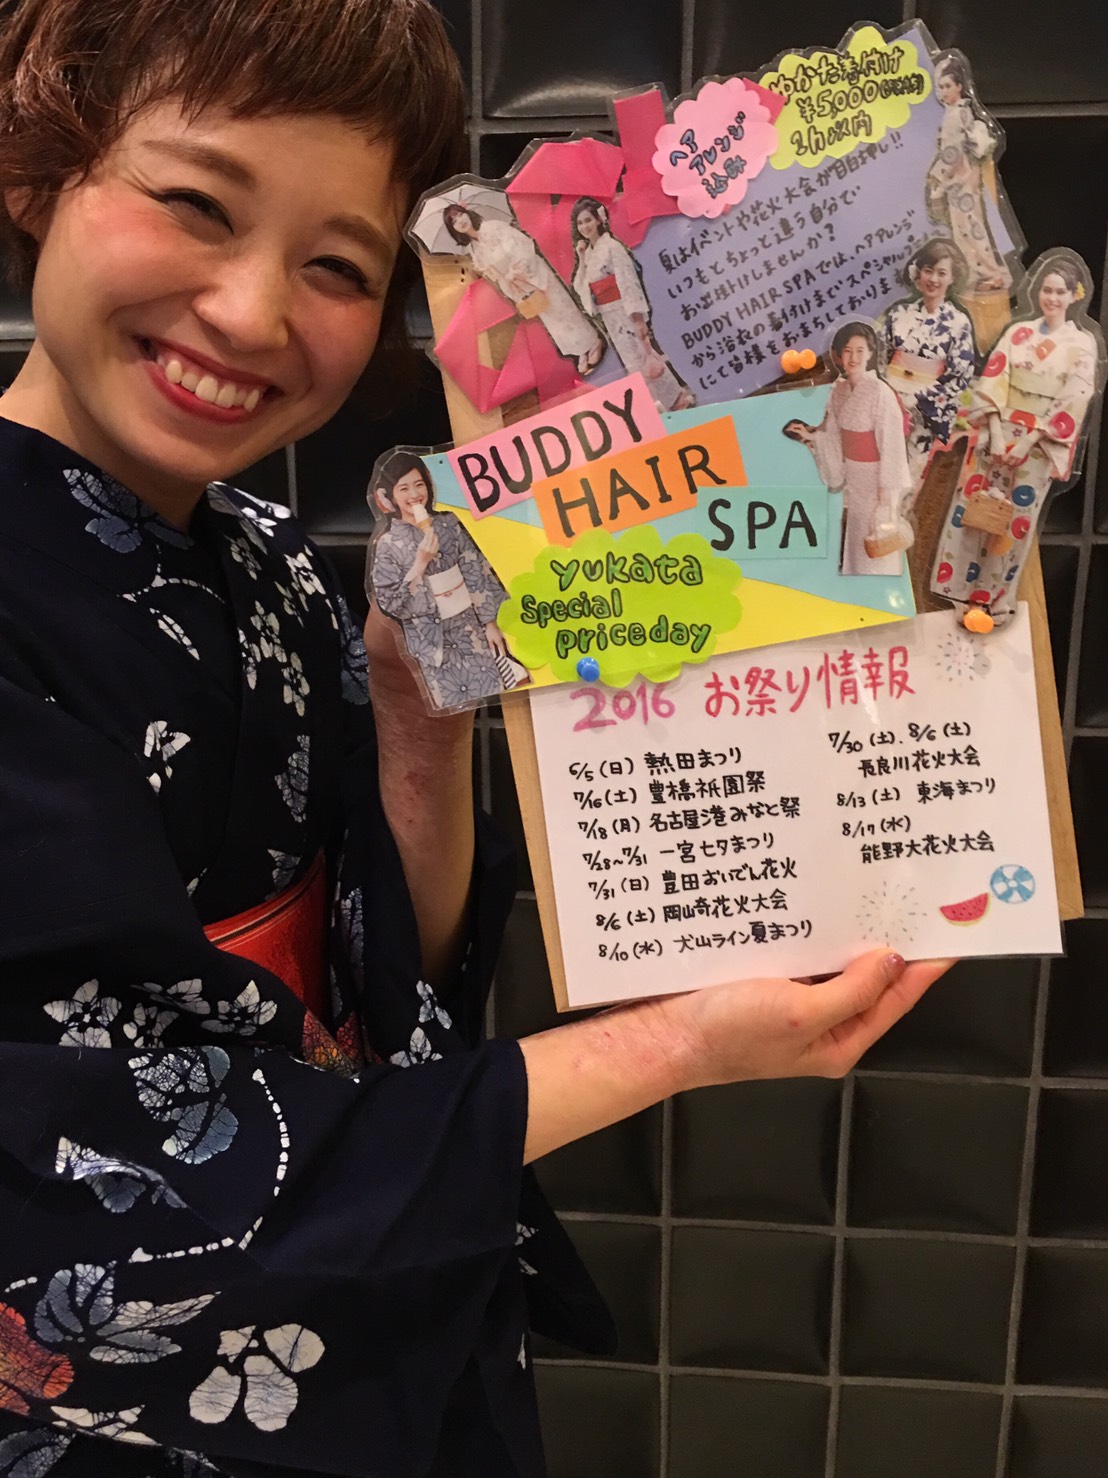 ゆかた着付け
¥5,000(税込み)
2h以内
ヘア
アレンジ
込み
夏はイベントや花火大会が目白押し!!
いつもとちょっと違う自分で
お出掛けしませんか?
BUDDY HAIR SPAでは、ヘアアレンジ
から浴衣の着付けまでスペシャル
にて皆様をおまちしております
BUDDY
HAIR
SPA
yukata
Special
price day
2016 お祭り情報
6/5(日) 熱田まつり
7/16(土) 豊橋祇園祭
7/18(月) 名古屋港みなと祭
7/28~7/31 一宮七夕まつり
7/31(日) 豊田おいでん花火
8/6(土) 岡山奇花火大会
8/10(水) 犬山ライン夏まつり
7/30(土)、8/6(土)
長良川花火大会
8/13(土) 東海まつり
8/17(水)
能野大花火大会